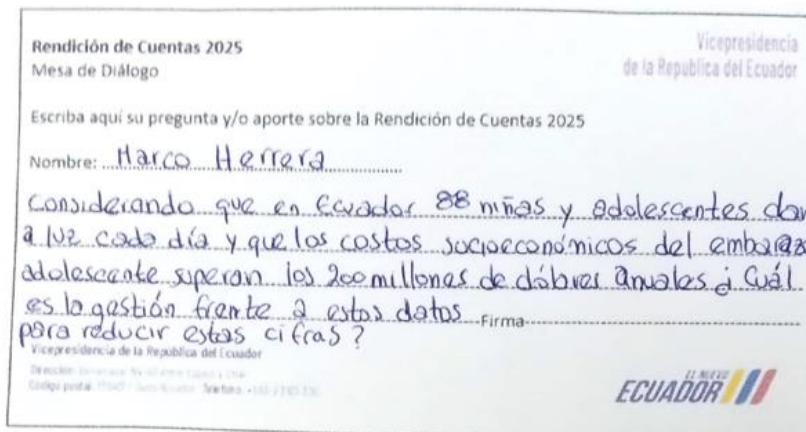 Rendición de Cuentas 2025
Mesa de Diálogo
Vicepresidencia
de la República del Ecuador
Escriba aquí su pregunta y/o aporte sobre la Rendición de Cuentas 2025
Nombre: Marco Herrera
Considerando que en Ecuador 88 niñas y adolescentes dan
a luz cada día y que los costos socioeconómicos del embarazo
adolescente superan los 200 millones de dólares anuales ¿Cuál
es la gestión frente a estos datos Firma
para reducir estas cifras?
Vicepresidencia de la República del Ecuador
Código postal: Teléfono:
EL NUEVO
ECUADOR